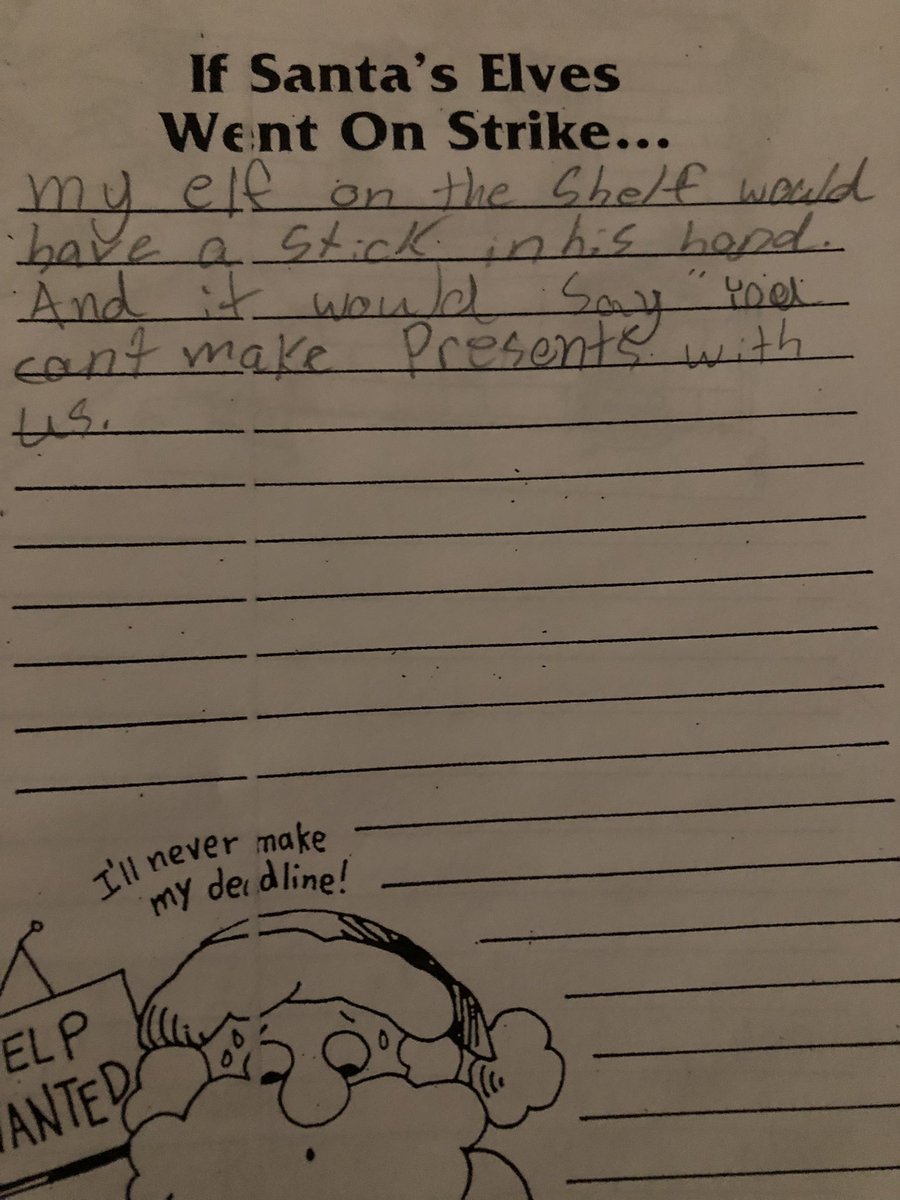 If Santa's Elves
Went On Strike...
my elf on the Shelf would
have a stick in his hand.
And it would Say "you
can't make Presents with
us.
I'll never make
my deadline!
ELP
ANTED